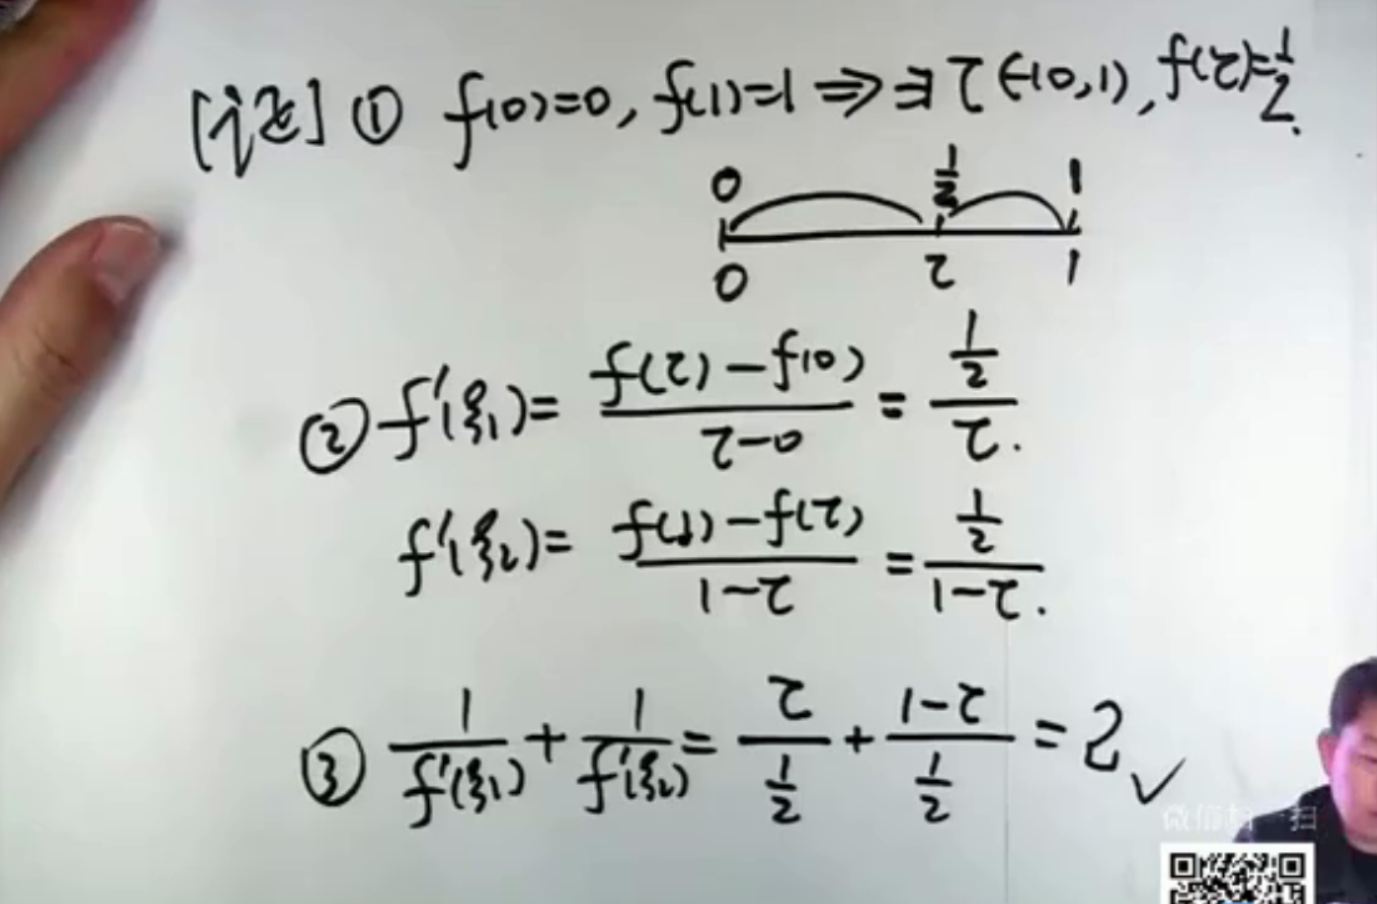 [证] ① f(0)=0, f(1)=1 ⇒ ∃ τ∈(0,1), f(τ)=1/2.
0 1/2 1
0 τ 1
② f'(ξ₁)= (f(τ)-f(0))/(τ-0) = (1/2)/τ.
f'(ξ₂)= (f(1)-f(τ))/(1-τ) = (1/2)/(1-τ).
③ 1/f'(ξ₁) + 1/f'(ξ₂) = τ/(1/2) + (1-τ)/(1/2) = 2 ✓
微信扫一扫